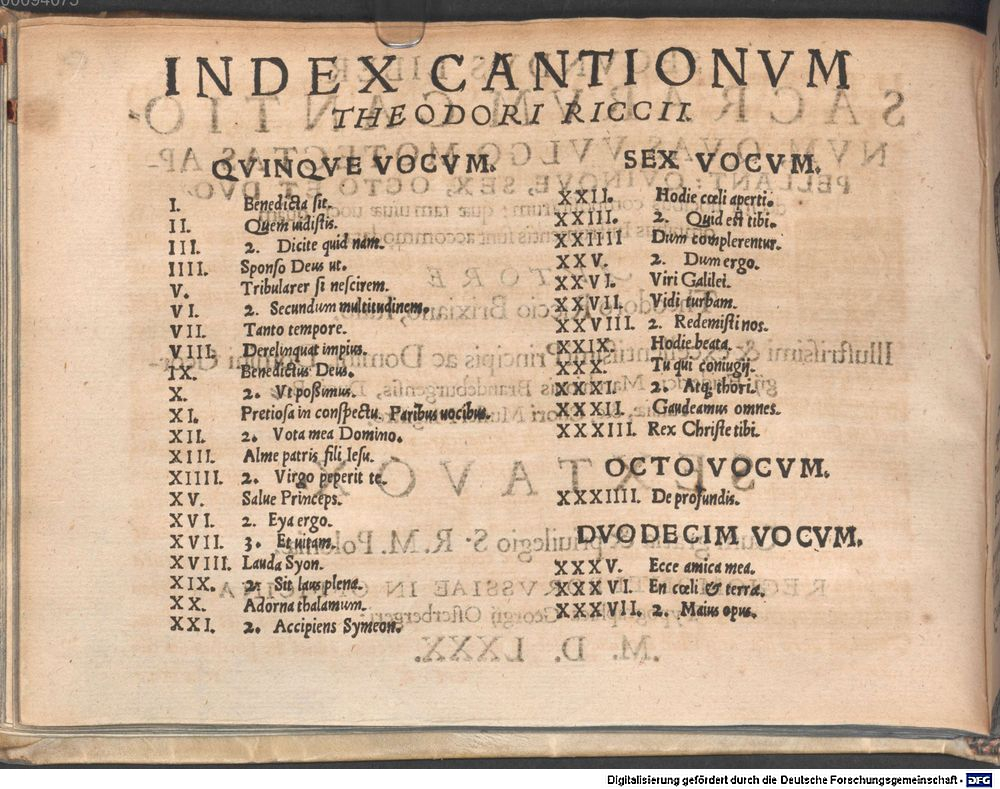 INDEX CANTIONVM
THEODORI RICCII.
QVINQVE VOCVM.
I. Benedicta sit.
II. Quem uidistis.
III. 2. Dicite quid nam.
IIII. Sponso Deus ut.
V. Tribularer si nescirem.
VI. 2. Secundum multitudinem.
VII. Tanto tempore.
VIII. Derelinquat impius.
IX. Benedictus Deus.
X. 2. Vt possimus.
XI. Pretiosa in conspectu. Paribus uocibus.
XII. 2. Vota mea Domino.
XIII. Alme patris fili Iesu.
XIIII. 2. Virgo peperit te.
XV. Salue Princeps.
XVI. 2. Eya ergo.
XVII. 3. Et uitam.
XVIII. Lauda Syon.
XIX. 2. Sit laus plena.
XX. Adorna thalamum.
XXI. 2. Accipiens Symeon.
SEX VOCVM.
XXII. Hodie cœli aperti.
XXIII. 2. Quid est tibi.
XXIIII Dum complerentur.
XXV. 2. Dum ergo.
XXVI. Viri Galilei.
XXVII. Vidi turbam.
XXVIII. 2. Redemisti nos.
XXIX. Hodie beata.
XXX. Tu qui coniugij.
XXXI. 2. Atq; thori.
XXXII. Gaudeamus omnes.
XXXIII. Rex Christe tibi.
OCTO VOCVM.
XXXIIII. De profundis.
DVODECIM VOCVM.
XXXV. Ecce amica mea.
XXXVI. En cœli & terra.
XXXVII. 2. Maius opus.
Digitalisierung gefördert durch die Deutsche Forschungsgemeinschaft - DFG